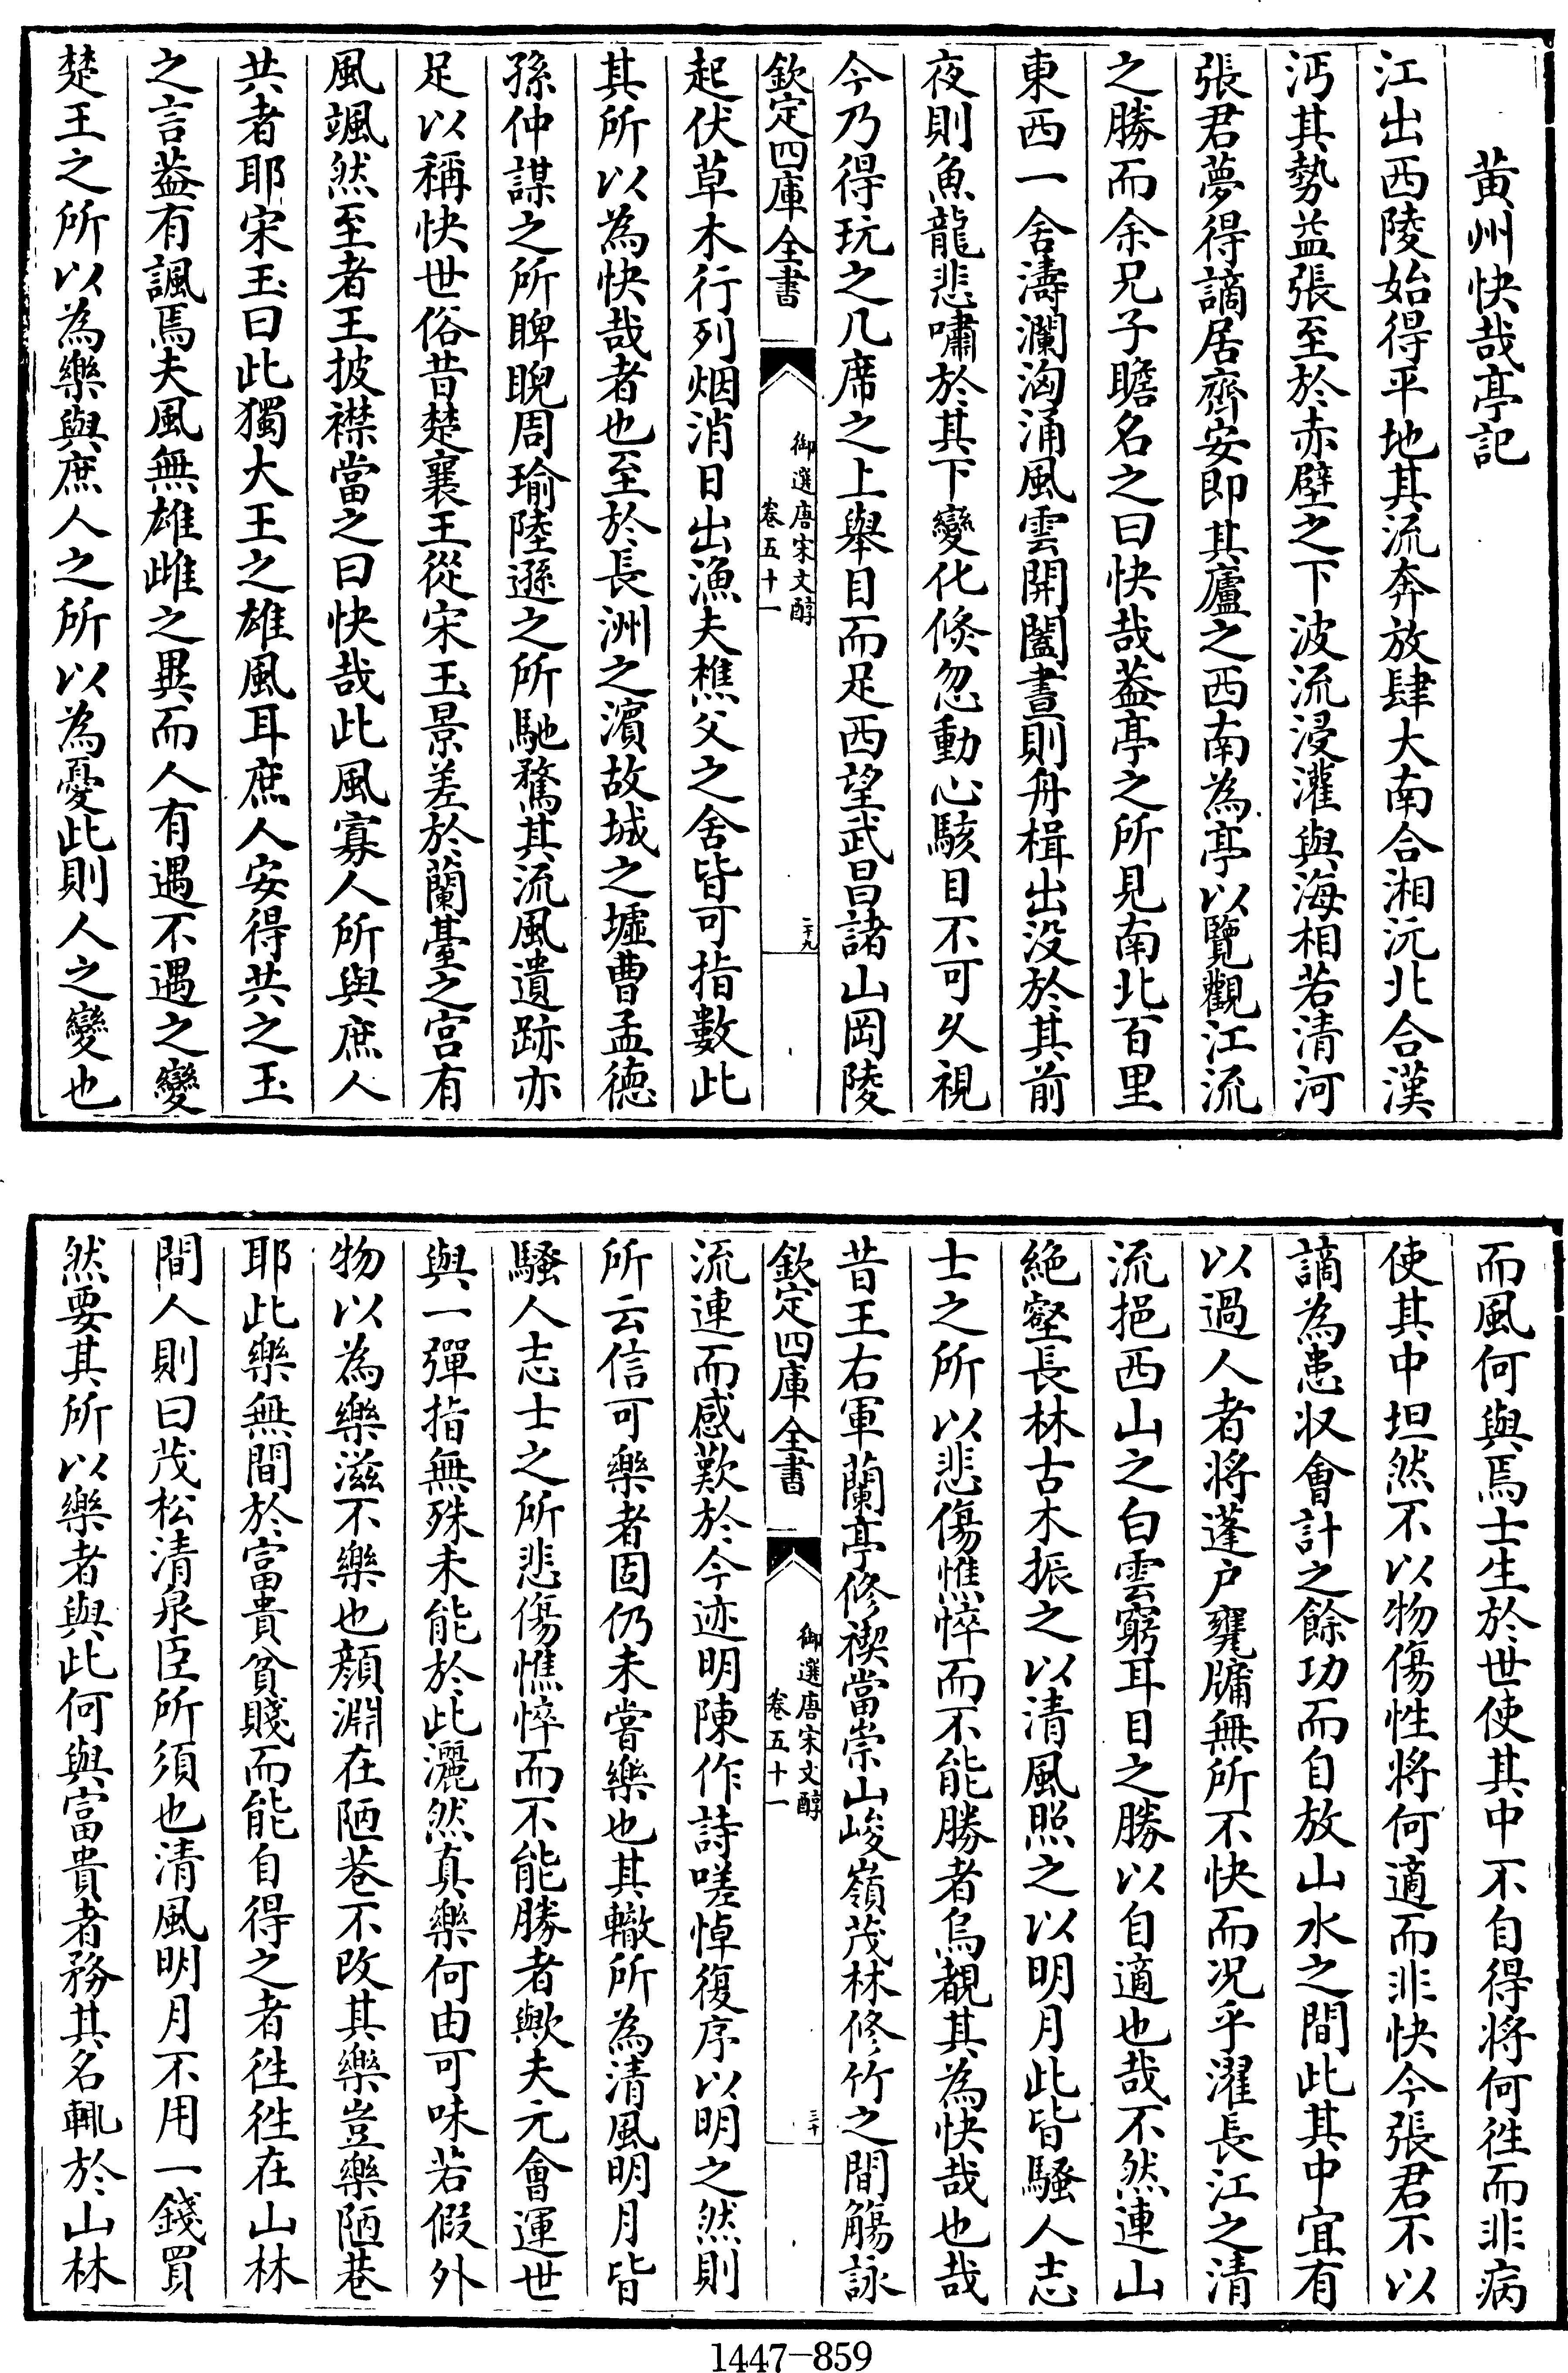 黄州快哉亭記
江出西陵始得平地其流奔放肆大南合湘沅北合漢
沔其勢益張至於赤壁之下波流浸灌與海相若清河
張君夢得謫居齊安即其廬之西南為亭以覽觀江流
之勝而余兄子瞻名之曰快哉葢亭之所見南北百里
東西一舍濤瀾洶涌風雲開闔晝則舟楫出没於其前
夜則魚龍悲嘯於其下變化倐忽動心駭目不可久視
今乃得玩之几席之上舉目而足西望武昌諸山岡陵
欽定四庫全書
御選唐宋文醇
卷五十一
二十九
起伏草木行列烟消日出漁夫樵父之舍皆可指數此
其所以為快哉者也至於長洲之濱故城之墟曹孟德
孫仲謀之所睥睨周瑜陸遜之所馳騖其流風遺跡亦
足以稱快世俗昔楚襄王從宋玉景差於蘭臺之宫有
風颯然至者王披襟當之曰快哉此風寡人所與庶人
共者耶宋玉曰此獨大王之雄風耳庶人安得共之玉
之言葢有諷焉夫風無雄雌之異而人有遇不遇之變
楚王之所以為樂與庶人之所以為憂此則人之變也
而風何與焉士生於世使其中不自得將何徃而非病
使其中坦然不以物傷性將何適而非快今張君不以
謫為患収會計之餘功而自放山水之間此其中宜有
以過人者將蓬户甕牖無所不快而况乎濯長江之清
流挹西山之白雲窮耳目之勝以自適也哉不然連山
絶壑長林古木振之以清風照之以明月此皆騷人志
士之所以悲傷憔悴而不能勝者烏覩其為快哉也哉
昔王右軍蘭亭修禊當崇山峻嶺茂林修竹之間觴詠
欽定四庫全書
御選唐宋文醇
卷五十一
三十
流連而感歎於今迹明陳作詩嗟悼復序以明之然則
所云信可樂者固仍未嘗樂也其轍所為清風明月皆
騷人志士之所悲傷憔悴而不能勝者歟夫元會運世
與一彈指無殊未能於此灑然真樂何由可味若假外
物以為樂滋不樂也顔淵在陋巷不改其樂豈樂陋巷
耶此樂無間於富貴貧賤而能自得之者徃徃在山林
間人則曰茂松清泉臣所須也清風明月不用一錢買
然要其所以樂者與此何與富貴者務其名輒於山林
1447-859